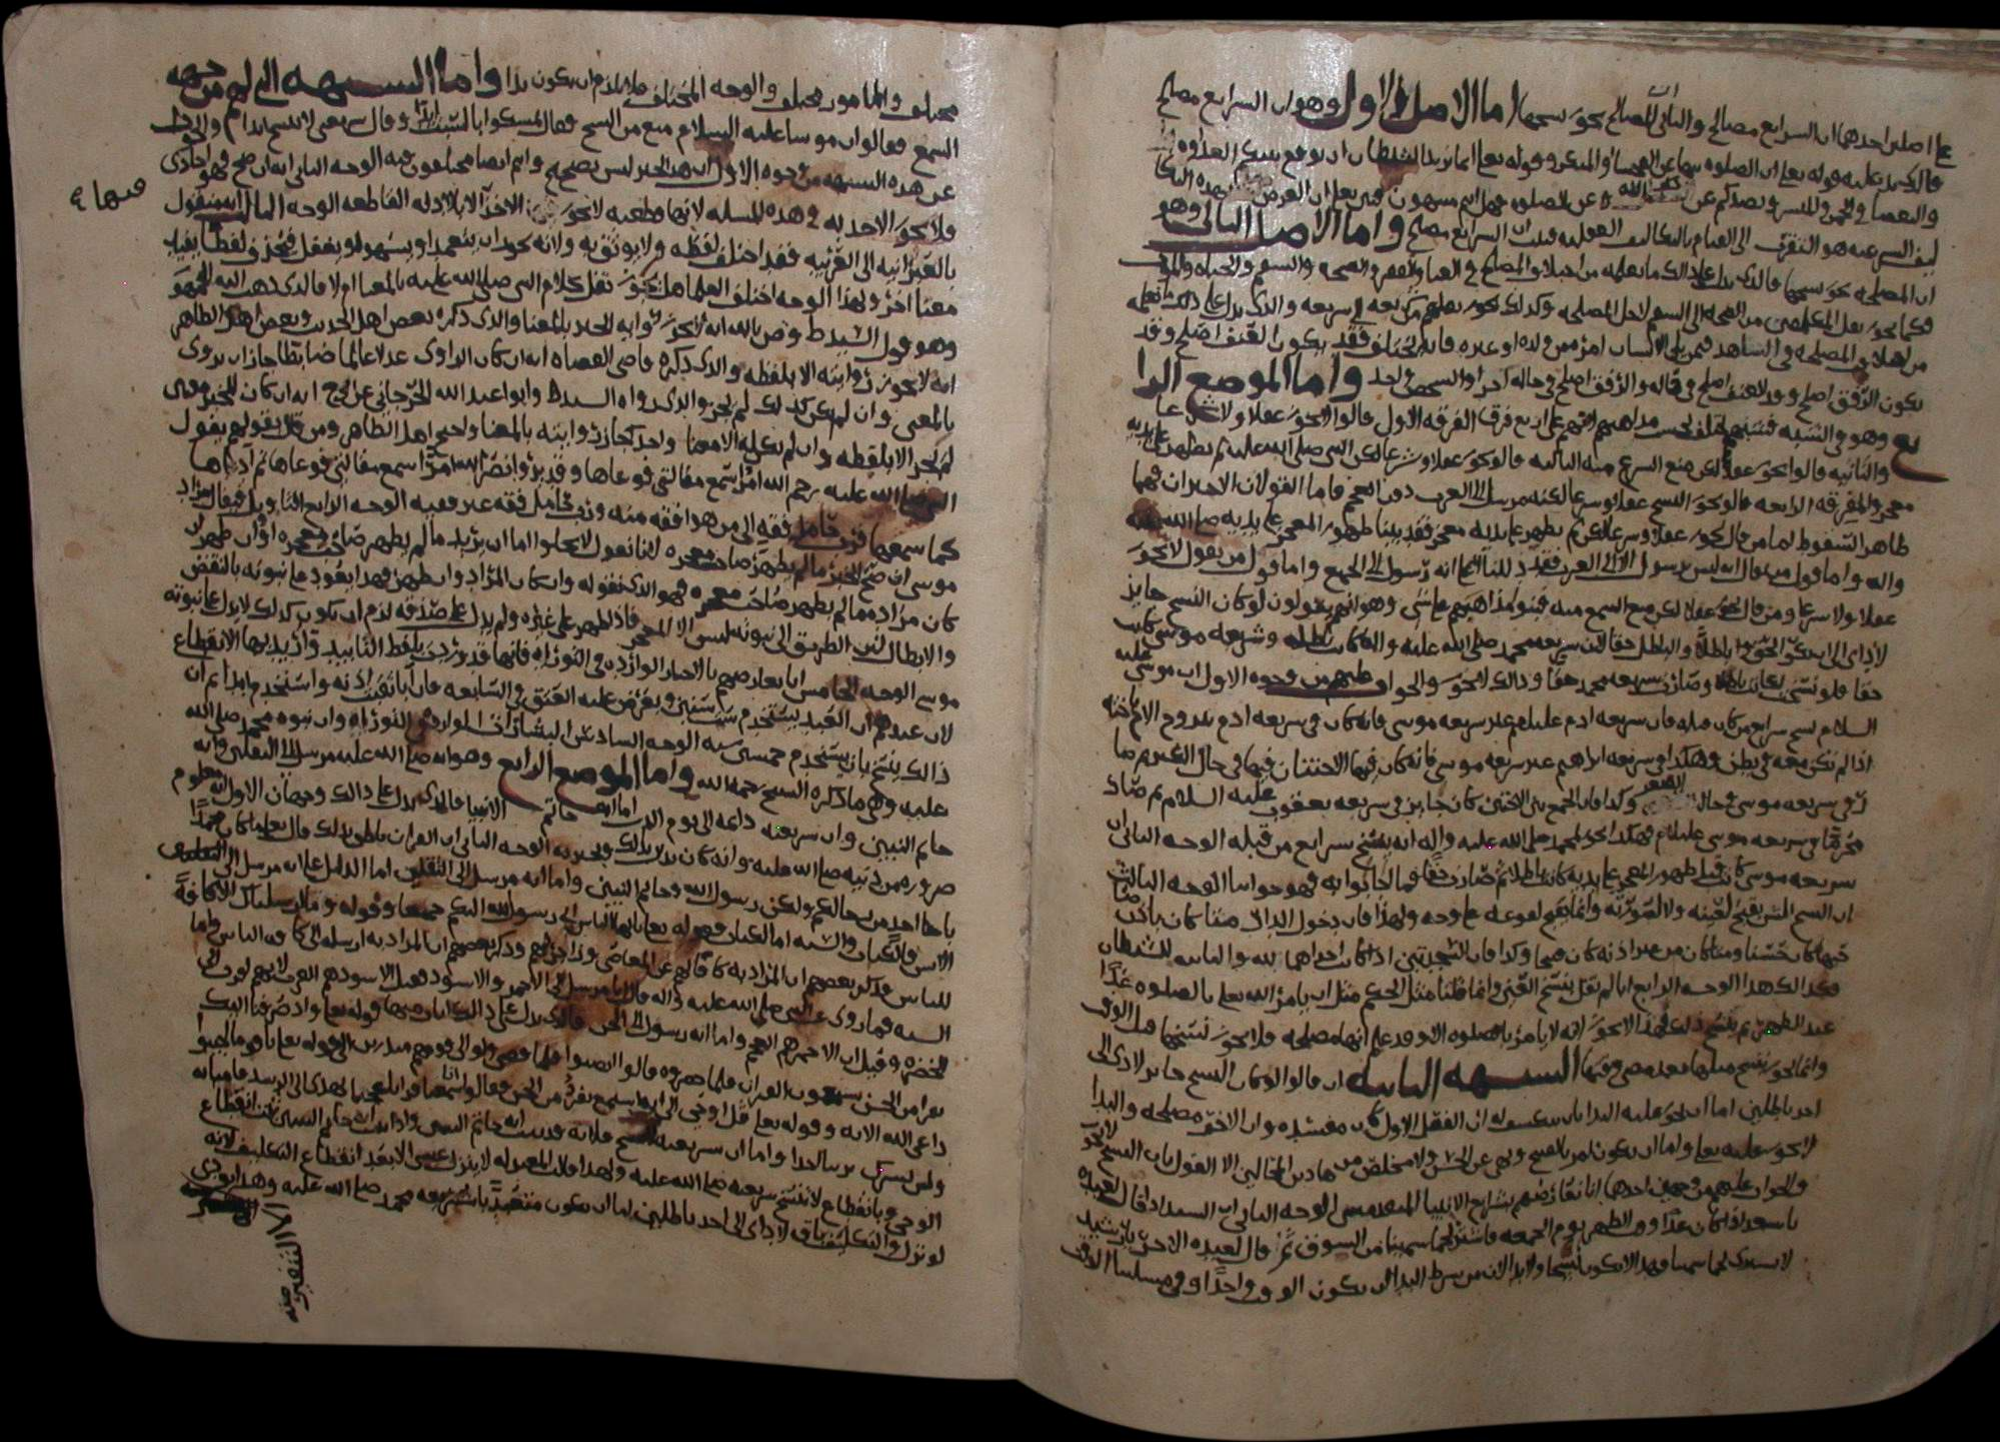 على اصلين احدهما ان الشرايع مصالح والثاني ان المصالح يجوز نسخها اما الاصل الاول وهو ان الشرايع مصالح
فالذي يدل عليه قوله تعلى ان الصلوه تنهى عن الفحشا والمنكر وقوله تعلى انما يريد الشيطان ان يوقع بينكم العداوه
والبغضا في الخمر والميسر ويصدكم عن ذكر الله وعن الصلوه فهل انتم منتهون فبين تعلى ان الغرض بهذه التكا
ليف الشرعيه هو التقرب الى القيام بالتكاليف العقليه فثبت ان الشرايع مصالح واما الاصل الثاني وهو
ان المصلحه يجوز نسخها فالذي يدل على ذالك ما نعلمه من اختلاف المصالح في الغنا والفقر والصحه والسقم والحياه والموت
فكما يجوز نقل المكلفين من الصحه الى السقم لاجل المصلحه وكذلك يجوز نقلهم من شريعه الى شريعه والذي يدل على ذالك ما نعلمه
من اختلاف المصلحه في الشاهد فيمن يلي الانسان امره من ولده او غيره فانه يختلف فقد يكون العنف اصلح وقد
يكون الرفق اصلح وقد العنف اصلح في حاله والرفق اصلح في حاله اخرا والشخص واحد واما الموضع الرا
بع وهو في الشبه فشبههم تختلف بحسب مذاهبهم لانهم على اربع فرق الفرقه الاولى قالوا لا يجوز عقلا ولا شرعا
والثانيه قالوا يجوز عقلا لكن منع السمع منه الثالثه قالو يجوز عقلا وشرعا لكن النبي صلى الله عليه لم يظهر على يديه
معجز والفرقه الرابعه قالو يجوز النسخ عقلا وشرعا لكنه مرسل الى العرب دون العجم فاما القولان الاخيران فهما
ظاهر السقوط اما من قال يجوز عقلا وشرعا لكن لم يظهر على يديه معجز فقد بينا ظهور المعجز على يديه صلى الله عليه
واله واما قول من قال انه ليس برسول الا الى العرب فقد دللنا انه رسول الى الجميع واما قول من يقول لا يجوز
عقلا ولا شرعا ومن قال يجوز عقلا لكن منع السمع منه فبنو مذاهبهم على شي وهو انهم يقولون لو كان النسخ جايز
لادى الى ان يكون الحق باطلا والباطل حقا لان شريعه محمد صلى الله عليه واله كانت باطله وشريعه موسى كانت
حقا فلو نسخت لعادت باطله وصارت شريعه محمد حقا وذالك لا يجوز والجواب عليهم من وجوه الاول ان موسى عليه
السلام نسخ شرايع من كان قبله فان شريعه ادم عليلم غير شريعه موسى فانه كان في شريعه ادم تزوج الاخ اخته
اذا لم تكن معه في بطن وهكذا في شريعه ابراهيم غير شريعه موسى فانه كان فيها الاختتان فيها في حال الكبر
في شريعه موسى في حال الصغر وكذا فان الجمع بين الاختين كان جايز في شريعه يعقوب عليه السلام ثم صار
محرما في شريعه موسى عليلم فهكذا يجوز لمحمد صلى الله عليه واله انه ينسخ شرايع من قبله الوجه الثاني ان
شريعه موسى كانت قبل ظهور المعجز على يديه كانت باطله ثم صارت حقا فما اجابوا به فهو جوابنا الوجه الثالث
ان النسخ ليس يقبح لعينه ولا لصورته وانما يقبح لوقوعه على وجه ولهذا فان دخول الدار متا كان باذن صا
حبها كان حسنا ومتا كان من غير اذنه كان قبيحا وكذا فان السجدتين اذا كانت احداهما لله والثانيه للشيطان
فكذالك هذا الوجه الرابع انا لم نقل ينسخ العين وانما قلنا مثل الحكم مثل ان يامر الله تعلى بالصلوه غدا
عند الظهر ثم ينسخ ذلك فهذا لا يجوز لانه لا يامر بالصلوه الا وقد علم انها مصلحه فلا يجوز نسخها قبل الوقت
وانما يجوز نسخ مثلها بعد مضي وقتها الشبهه الثانيه ان قالوا لو كان النسخ جايز لادى الى
احد باطلين اما ان يجوز عليه البدا بان ينكشف له ان الفعل الاول كان مفسده وان الاخر مصلحه والبدا
لا يجوز عليه تعلى واما ان يكون امر بالقبيح ونهى عن الحسن ولا مخلص من هاذين المحالين الا القول بان النسخ لا يجوز
والجواب عليهم من وجهين احدهما انا نعارضهم بشرايع الانبيا المتقدمين الوجه الثاني ان السيد اذا قال لعبده
يا سعد اذا كان غدا وقت الظهر يوم الجمعه فاشتر لحما سمينا من السوق ثم قال لعبده الاخر يا رشيد
لا تشتري لحما سمينا فهذا لا يكون نسخا ولا بدا لان من شرط البدا ان يكون الوقت واحدا وفي مسلتنا الوقت
مختلف والمامور مختلف والوجه المختلف فلا يلزم ان يكون بدا واما الشبهه التي لهم من جهه
السمع فقالوا ان موسا عليه السلام منع من النسخ فقال تمسكوا بالسبت ابدا وقال شريعتي لا تنسخ ابدا والجواب
عن هذه الشبهه من وجوه الاول ان هذا الخبر ليس بصحيح وانتم ايضا مختلفون فيه الوجه الثاني انه ان صح فهو احادي
ولا يجوز الاخذ به في هذه المسله لانها قطعيه لا يجوز الاخذ الا بالادله القاطعه الوجه الثالث انه منقول
بالعبرانيه الى العربيه فقد اختلف لفظه ولا يوثق به ولانه يجوز ان يتعمد او يسهو او يغفل فيحذف لفظا يفيد
معنا اخر ولهذا الوجه اختلف العلما هل يجوز نقل كلام النبي صلى الله عليه بالمعنا ام لا فالذي ذهب اليه الجمهور
وهو قول السيد ط وص بالله انه لا يجوز روايه الخبر بالمعنا والذي ذكره بعض اهل الحديث وبعض اهل الظاهر
انه لا يجوز روايته الا بلفظه والذي ذكره قاضي القضاه انه ان كان الراوي عدلا عالما ضابطا جاز ان يروى
بالمعنى وان لم يكن كذلك لم يجز والذي رواه السيد ط وابو عبد الله الجرجاني عن ح انه ان كان للخبر معنى
لم يجز الا بلفظه وان لم يكن له الا معنا واحد جازت روايته بالمعنا واحتج اهل الظاهر ومن قال بقولهم بقول
النبي صلى الله عليه رحم الله امرا سمع مقالتي فوعاها وقد يرو انضر الله امرا سمع مقالتي فوعاها ثم اداها
كما سمعها فرب حامل فقه الى من هو افقه منه ورب حامل فقه غير فقيه الوجه الرابع التاويل فيقال مراد
موسى ان صح الخبر ما لم يظهر صاحب معجزه لانا نقول لا يخلوا اما ان يريد ما لم يظهر صاحب معجزه او ان ظهر ان
كان مراده ما لم يظهر صاحب معجزه فهو الذي نقوله وان كان المراد وان ظهر فهذا يعود على نبوته بالنقض
والابطال لان الطريق الى نبوته ليس الا المعجز فاذا ظهر على غيره ولم يدل على صدقه لزم ان يكون كذلك لا يدل على نبوته
موسى الوجه الخامس انا نعارضهم بالاخبار الوارده في التوراه فانها قد وردت بلفظ التابيد واريد بها الانقطاع
لان عندهم ان العبد يستخدم ست سنين ويعرض عليه العتق في السابعه فان ابا ثقبت اذنه واستخدم ابدا ثم ان
ذالك ينسخ بان يستخدم خمسين سنه الوجه السادس البشارات الوارده في التوراه وان نبوه محمد صلى الله
عليه وهي ما ذكره الشيخ رحمه الله واما الموضع الرابع وهو انه صلى الله عليه مرسل الى الثقلين وانه
خاتم النبيين وان شريعته دايمه الى يوم الدين اما انه خاتم الانبيا فالذي يدل على ذالك وجهان الاول انه معلوم
ضروره من دينه صلى الله عليه وانه كان يدين بذلك ويخبر به الوجه الثاني ان القران ناطق بذلك قال تعلى ما كان محمد ا
با احد من رجالكم ولكن رسول الله وخاتم النبيين واما انه مرسل الى الثقلين اما الدليل على انه مرسل الى
الانس فالكتاب والسنه اما الكتاب فقوله تعلى يا ايها الناس اني رسول الله اليكم جميعا وقوله وما ارسلناك الا كافه
للناس وذكر بعضهم ان المراد به كافا لهم عن المعاصي وزاجرا لهم وذكر بعضهم ان المراد به ارسله الى كافه الناس واما
السنه فما روي عن النبي صلى الله عليه واله قال انا مرسل الى الاحمر والاسود فقيل الاسود هم العرب لانهم لون الى
الخضره وقيل ان الاحمر هم العجم واما انه رسول الى الجن فالذي يدل على ذالك ايات منها قوله تعلى واذ صرفنا اليك
نفرا من الجن يستمعون القران فلما حضروه قالوا انصتوا فلما قضي ولو الى قومهم منذرين الى قوله تعلى يا قومنا اجيبوا
داعي الله الايه وقوله تعلى قل اوحي الى انه استمع نفر من الجن فقالوا انا سمعنا قرانا عجبا يهدي الى الرشد فامنا به
ولن نشرك بربنا احدا واما ان شريعته لا تنسخ فلانه قد ثبت انه خاتم النبيين واذا ثبت انه خاتم النبيين ثبت انقطاع
الوحي وبانقطاع لا تنسخ شريعته صلى الله عليه ولهذا قالت المعتزله لا ينزل عيسى الا بعد انقطاع التكليف لانه
لو نزل والتكليف باق لادى الى احد باطلين اما ان يكون متعبدا بشريعه محمد صلى الله عليه وهذا يودي
الى التنفير عنه
منها ٤